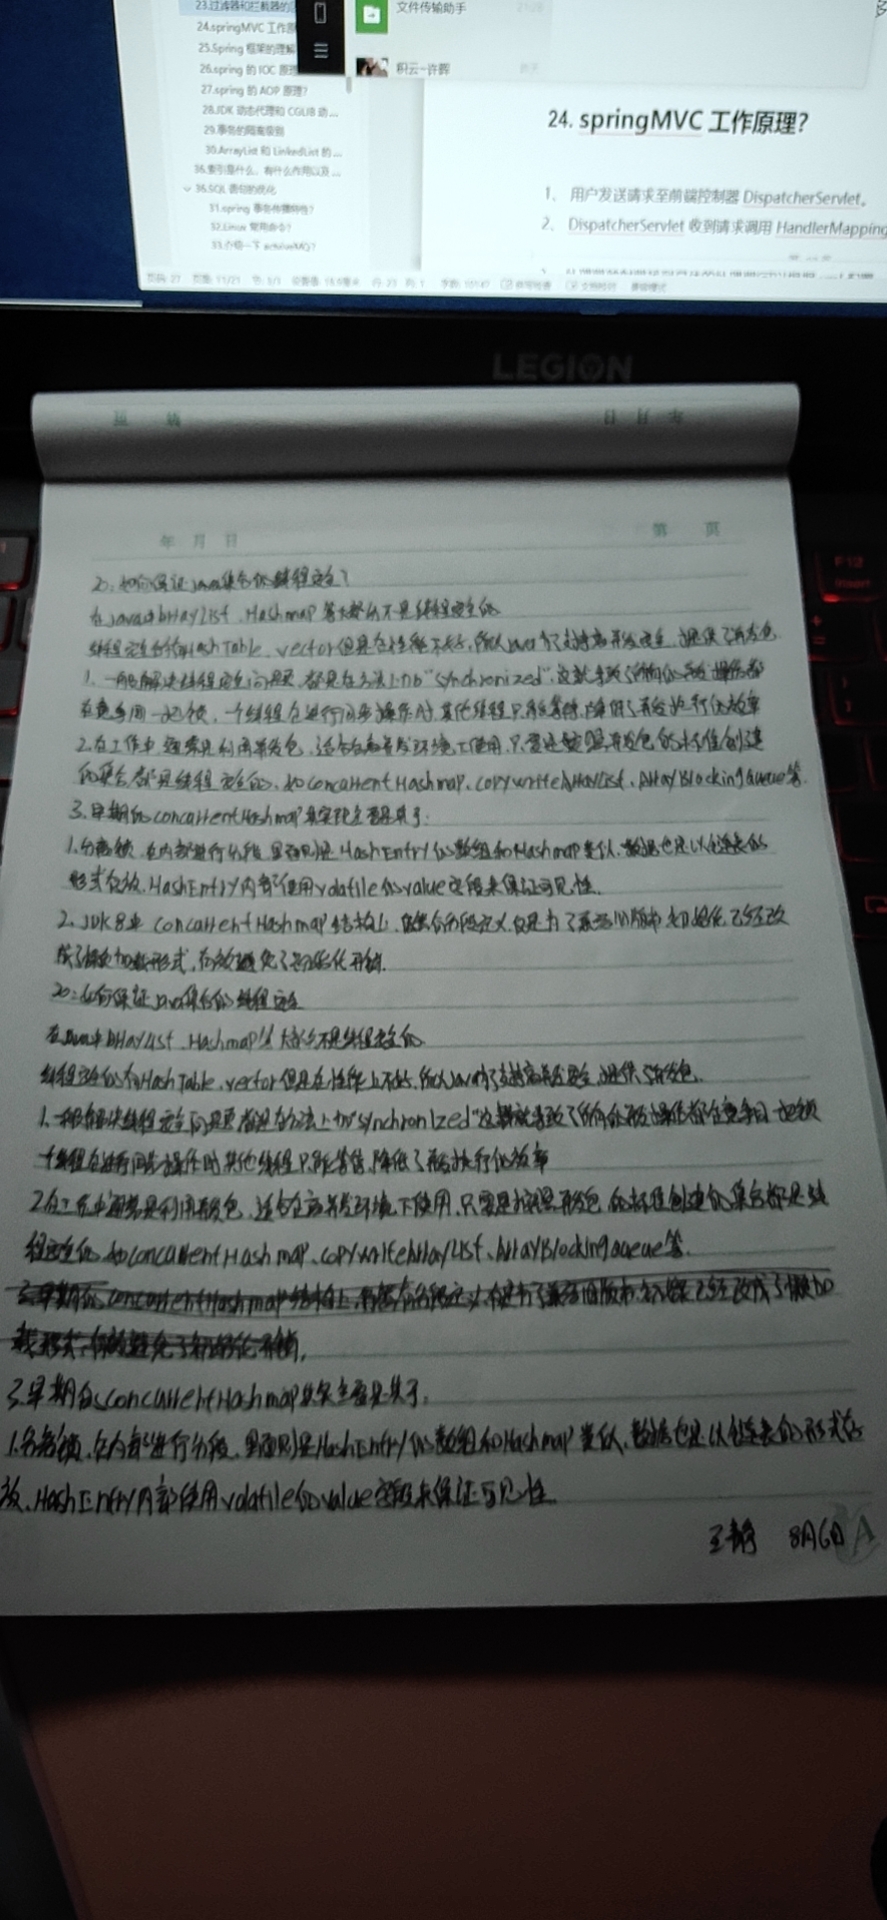 23.过滤器和拦截器的
24.springMVC 工作原
25.Spring 框架的理解
26.spring 的 IOC 原理
27.spring 的 AOP 原理?
28.JDK 动态代理和 CGLIB 动...
29.事务的隔离级别
30.ArrayList 和 LinkedList 的...
36.索引是什么,有什么作用以及...
35.SQL 语句的优化
31.spring 事务传播特性?
32.Linux 常用命令?
33.介绍一下 activeMQ?
文件传输助手
积云-许辉
24. springMVC 工作原理?
1、 用户发送请求至前端控制器 DispatcherServlet。
2、 DispatcherServlet 收到请求调用 HandlerMapping
LEGION
年 月 日
第 页
20.如何保证java集合的线程安全?
在java中ArrayList、Hashmap等大部分不是线程安全的
线程安全的有HashTable、vector但是在性能上不好,所以java为了支持高并发安全,提供了并发包
1.一般解决线程安全问题,都是在方法上加"synchronized",这就导致了所有的并发操作都
在竞争同一把锁,一个线程在进行同步操作时,其他线程只能等待,降低了并发执行的效率
2.在工作中通常是利用并发包,适合在高并发环境下使用,只要是按照并发包的标准创建
的集合都是线程安全的,如ConcurrentHashmap、copywriteArrayList、ArrayBlockingQueue等.
3.早期的concurrentHashmap其实现主要是基于:
1.分离锁,在内部进行分段,里面则是HashEntry的数组和Hashmap类似,数据也是以链表的
形式存放,HashEntry内部使用volatile的value字段来保证可见性.
2.JDK8中 concurrentHashmap结构上,虽然有分段定义,但是为了兼容旧版本,初始化已经改
成了懒加载形式,有效避免了初始化开销.
20.如何保证java集合的线程安全
在java中ArrayList、Hashmap等大部分不是线程安全的
线程安全的有HashTable、vector但是在性能上不好,所以java为了支持高并发安全,提供了并发包.
1.一般解决线程安全问题都是在方法上加"synchronized"这样就导致了所有的并发操作都在竞争同一把锁
一个线程在进行同步操作时其他线程只能等待,降低了并发执行的效率
2.在工作中通常是利用并发包,适合在高并发环境下使用,只要是按照并发包的标准创建的集合都是线
程安全的,如concurrentHashmap、copywriteArrayList、ArrayBlockingQueue等.
3.早期的concurrentHashmap其实主要是基于:
1.分离锁,在内部进行分段,里面则是HashEntry的数组和Hashmap类似,数据也是以链表的形式存
放,HashEntry内部使用volatile的value字段来保证可见性.
王静 8月6日